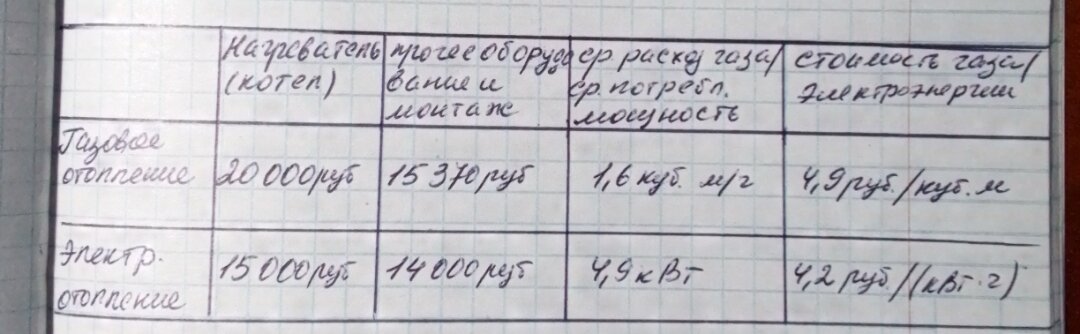 Нагреватель (котел)
прочее оборудование и монтаж
ср. расход газа/ ср. потребл. мощность
стоимость газа/ электроэнергии
Газовое отопление
20 000 руб
15 370 руб
1,6 куб. м/г
4,9 руб./куб. м
Электр. отопление
15 000 руб
14 000 руб
4,9 кВт
4,2 руб./(кВт·г)